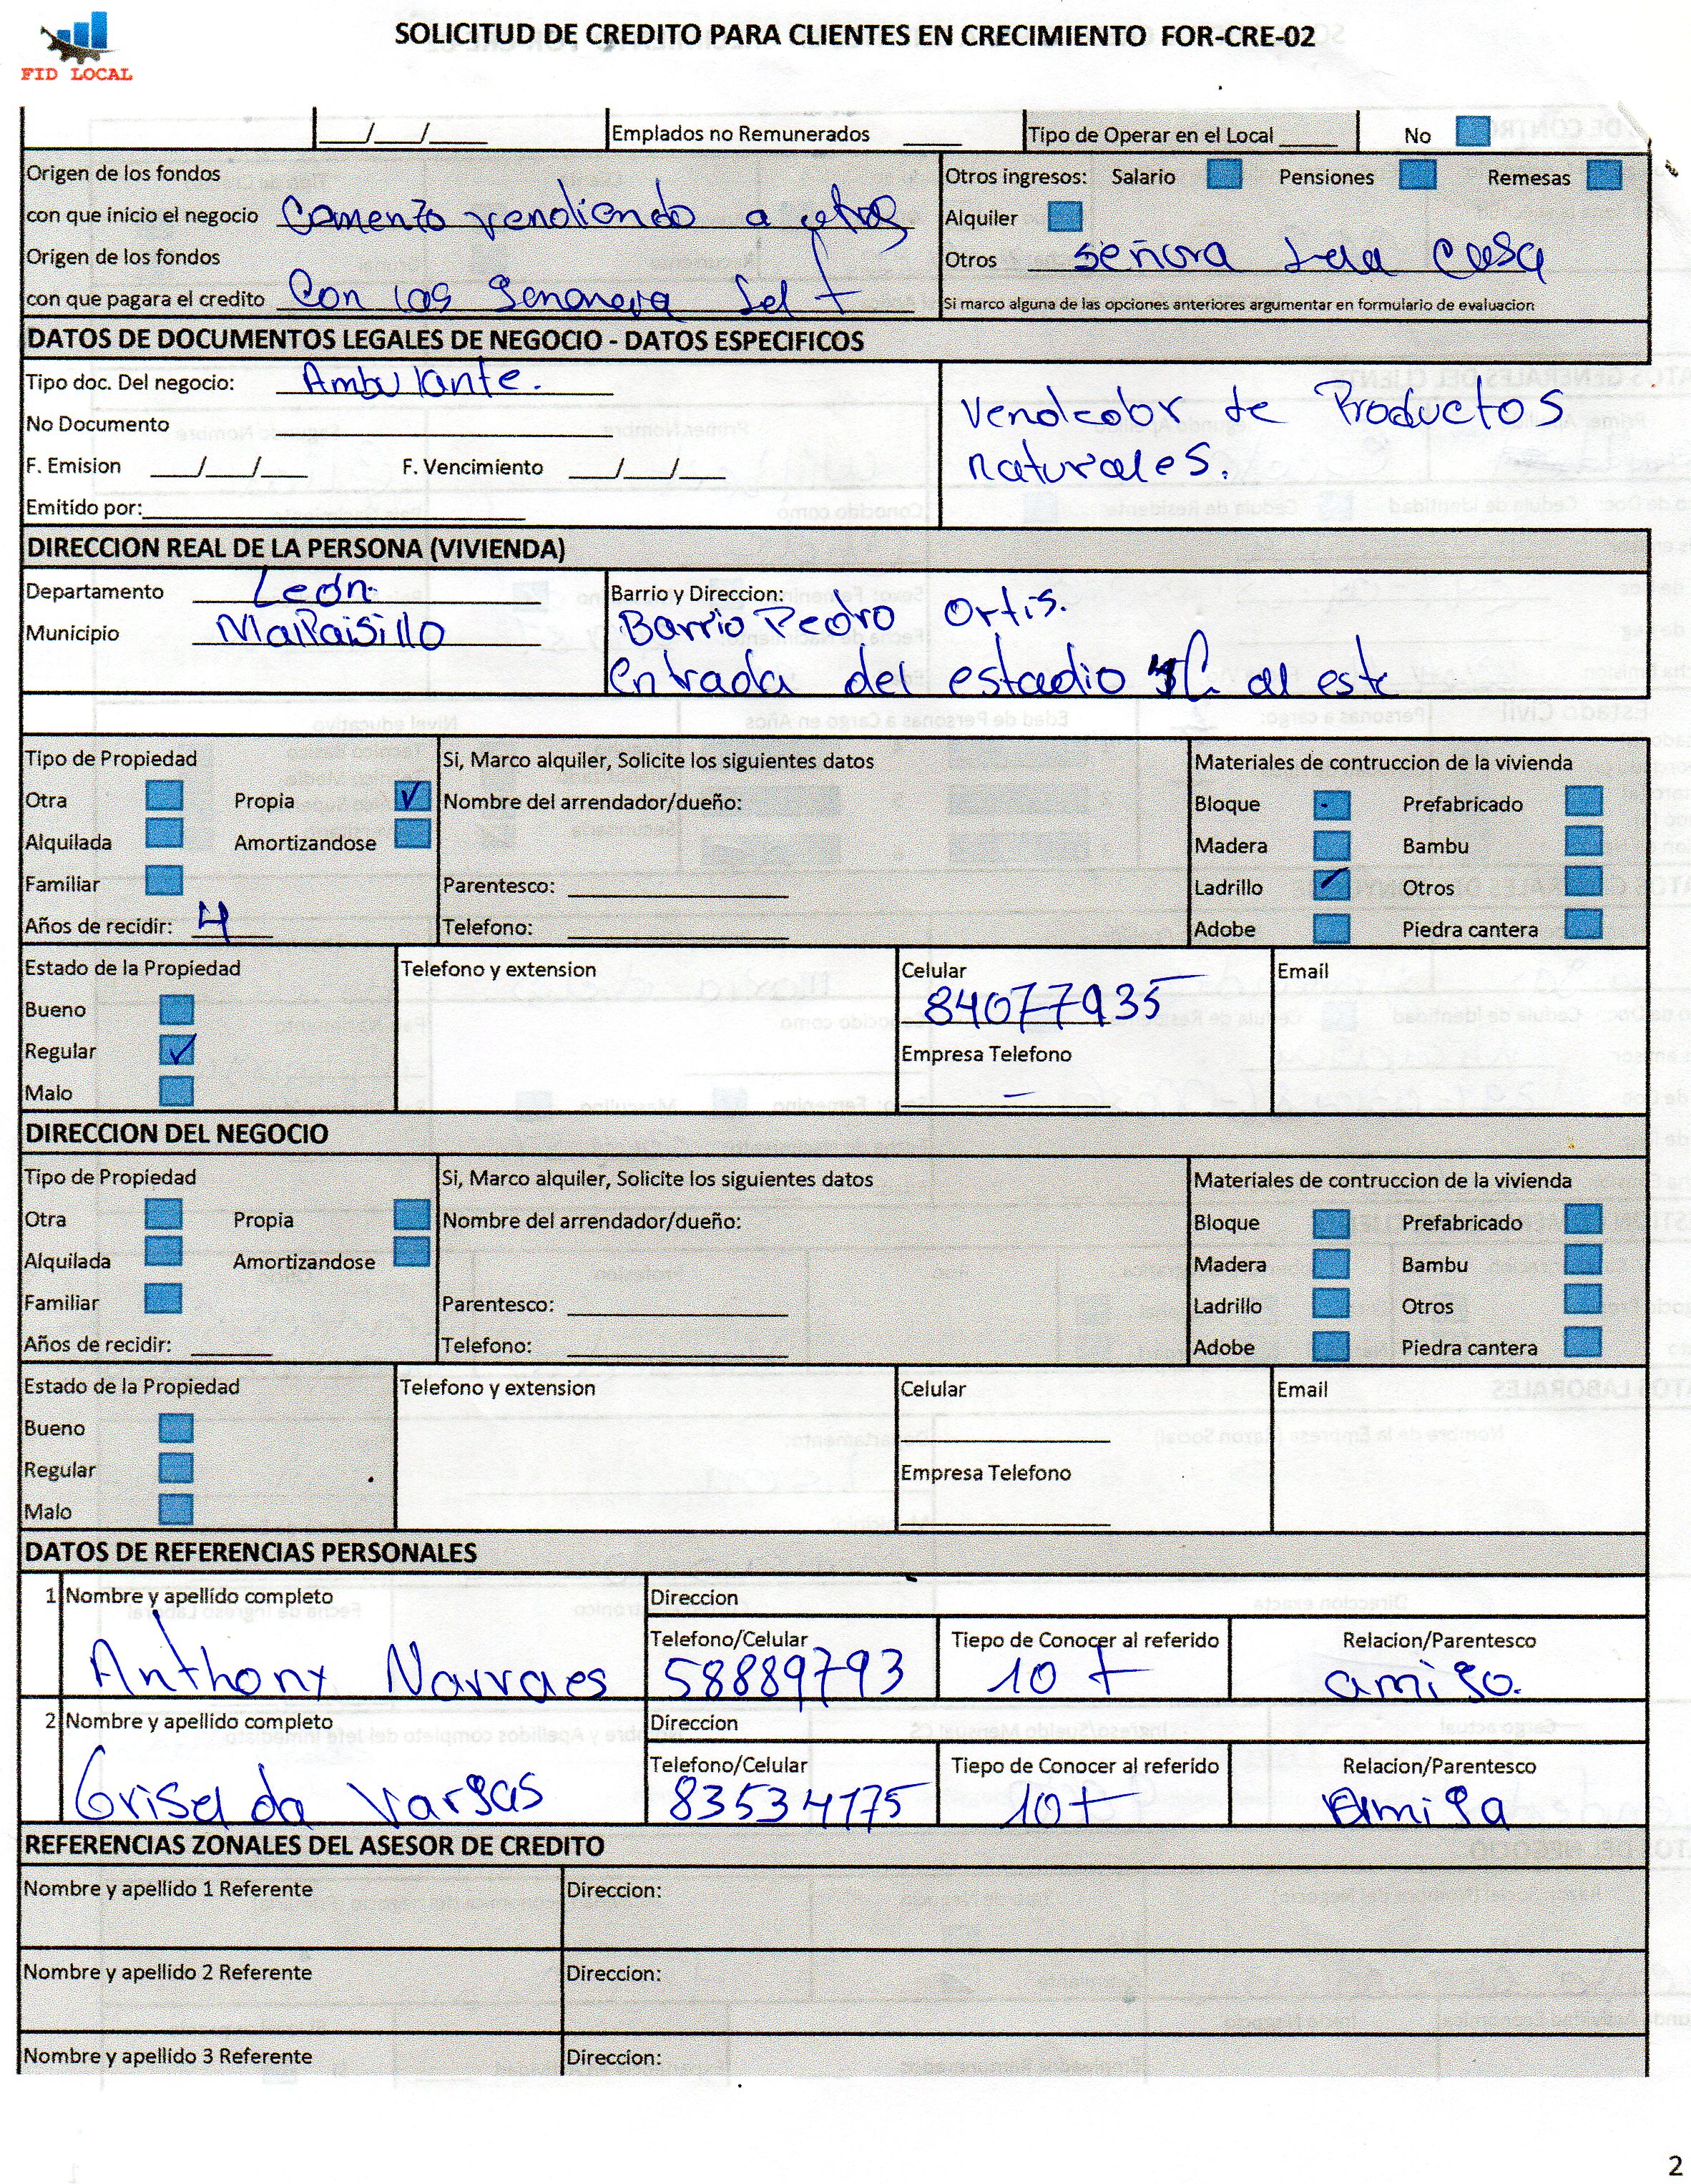 FID LOCAL
SOLICITUD DE CREDITO PARA CLIENTES EN CRECIMIENTO FOR-CRE-02
___/___/____ Emplados no Remunerados ____ Tipo de Operar en el Local ____ No
Origen de los fondos
con que inicio el negocio Comenzo vendiendo a
Origen de los fondos
con que pagara el credito Con las
Otros ingresos: Salario Pensiones Remesas
Alquiler
Otros señora
Si marco alguna de las opciones anteriores argumentar en formulario de evaluacion
DATOS DE DOCUMENTOS LEGALES DE NEGOCIO - DATOS ESPECIFICOS
Tipo doc. Del negocio: Ambulante.
No Documento
F. Emision ___/___/___ F. Vencimiento ___/___/___
Emitido por:
de Productos
naturales.
DIRECCION REAL DE LA PERSONA (VIVIENDA)
Departamento León
Municipio Malpaisillo
Barrio y Direccion:
Barrio Pedro Ortis.
entrada del estadio al este
Tipo de Propiedad
Otra Propia ✓
Alquilada Amortizandose
Familiar
Años de recidir: 4
Si, Marco alquiler, Solicite los siguientes datos
Nombre del arrendador/dueño:
Parentesco:
Telefono:
Materiales de contruccion de la vivienda
Bloque Prefabricado
Madera Bambu
Ladrillo ✓ Otros
Adobe Piedra cantera
Estado de la Propiedad
Bueno
Regular ✓
Malo
Telefono y extension
Celular
84077935
Empresa Telefono
—
Email
DIRECCION DEL NEGOCIO
Tipo de Propiedad
Otra Propia
Alquilada Amortizandose
Familiar
Años de recidir:
Si, Marco alquiler, Solicite los siguientes datos
Nombre del arrendador/dueño:
Parentesco:
Telefono:
Materiales de contruccion de la vivienda
Bloque Prefabricado
Madera Bambu
Ladrillo Otros
Adobe Piedra cantera
Estado de la Propiedad
Bueno
Regular
Malo
Telefono y extension
Celular
Empresa Telefono
Email
DATOS DE REFERENCIAS PERSONALES
1 Nombre y apellido completo
Anthony
Direccion
Telefono/Celular
58889793
Tiepo de Conocer al referido
10 +
Relacion/Parentesco
amigo.
2 Nombre y apellido completo
Griselda Vargas
Direccion
Telefono/Celular
83534175
Tiepo de Conocer al referido
10+
Relacion/Parentesco
Amiga
REFERENCIAS ZONALES DEL ASESOR DE CREDITO
Nombre y apellido 1 Referente Direccion:
Nombre y apellido 2 Referente Direccion:
Nombre y apellido 3 Referente Direccion:
2